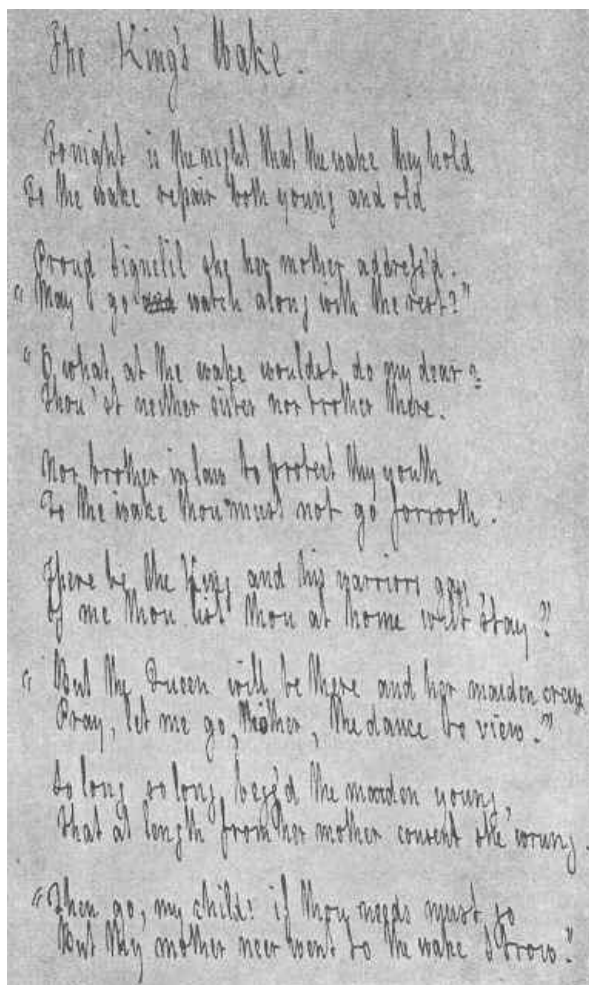 The King's Wake.
Tonight is the night that the wake they hold
To the wake repair both young and old
Proud Signelil she her mother address'd.
"May I go and watch along with the rest?"
"O what at the wake wouldst do my dear?
Thou'st neither sister nor brother there.
Nor brother in law to protect thy youth
To the wake thou must not go forsooth.
There be the King and his warriors gay,
If me thou list thou at home wilt stay"
"But the Queen will be there and her maiden crew
Pray, let me go, Mother, the dance to view."
So long so long begg'd the maiden young,
That at length from her mother consent she wrung.
"Then go, my child! if thou needs must go
But thy mother ne'er went to the wake I trow."